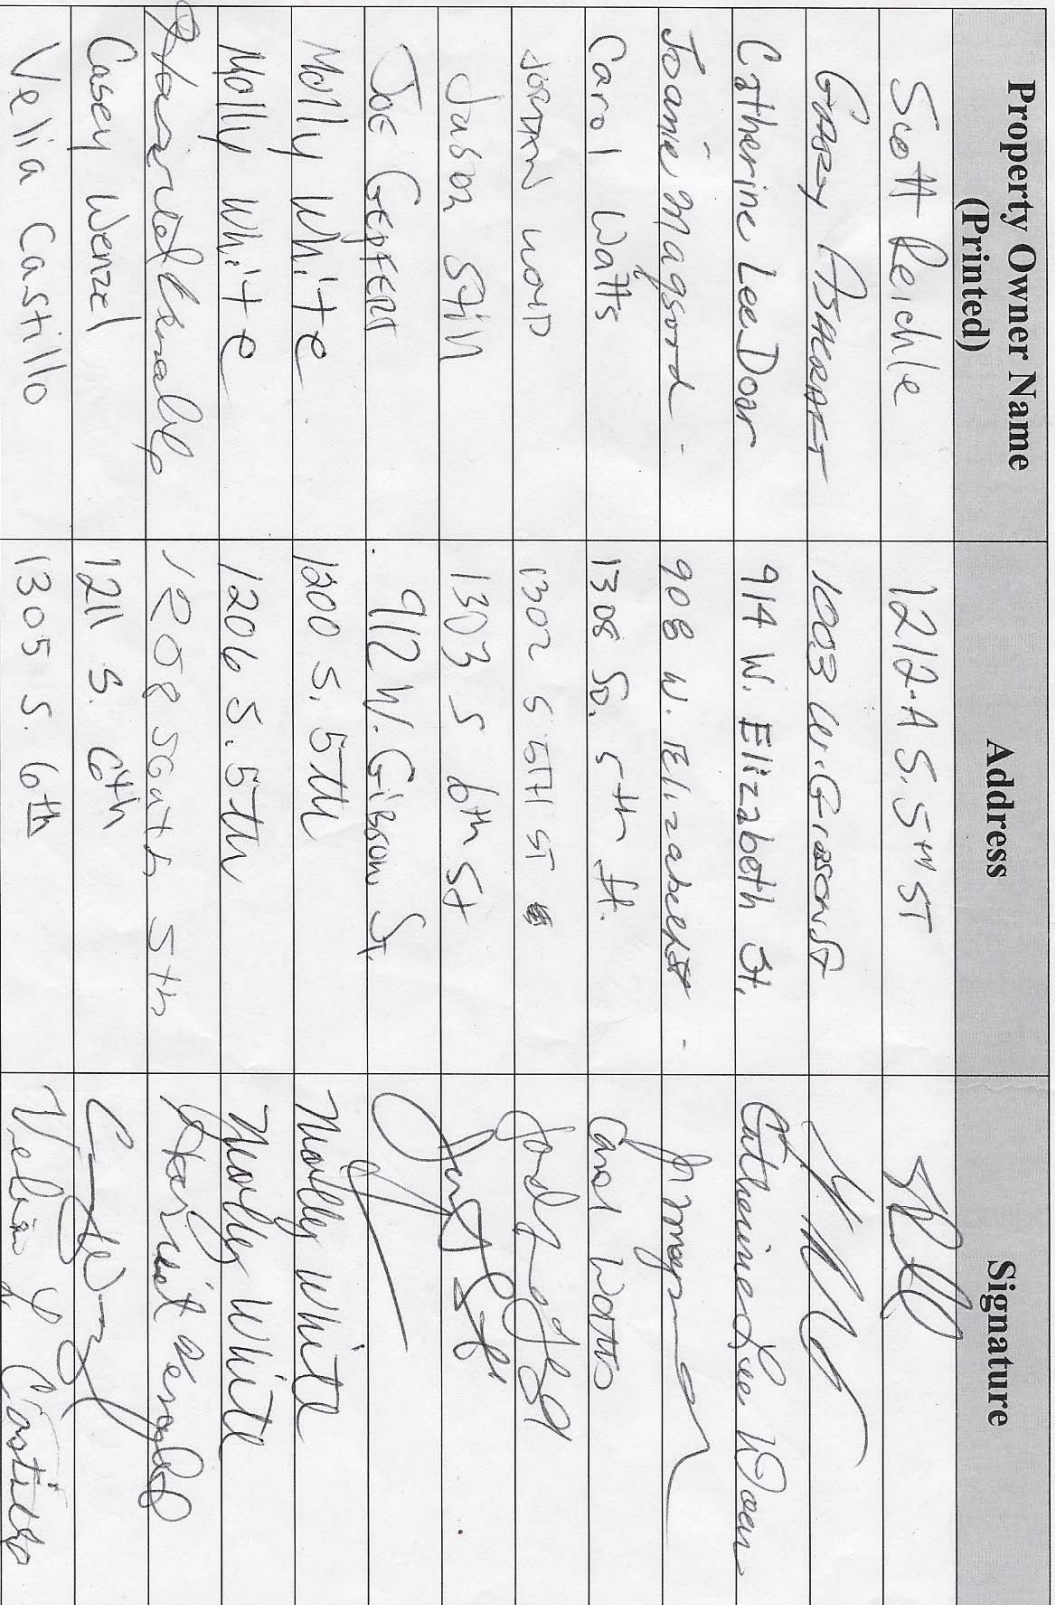 Property Owner Name (Printed) Address Signature
Scott Reichle 1212-A S. 5TH ST
GARY ASHCRAFT 1003 W. GIBSON ST
Catherine Lee Doar 914 W. Elizabeth St, Catherine Lee Doar
Joanie Magsord - 908 W. Elizabeth St -
Carol Watts 1308 So. 5th St. Carol Watts
JORDAN 1302 S 5TH ST
Jason Still 1303 S 6th St
JOE GEPFERT 912 W. GIBSON ST.
Molly White 1200 S. 5th Molly White
Molly White 1206 S. 5th Molly White
Harriet 1208 South 5th Harriet
Casey Wenzel 1211 S. 6th
Velia Castillo 1305 S. 6th Velia L Castillo